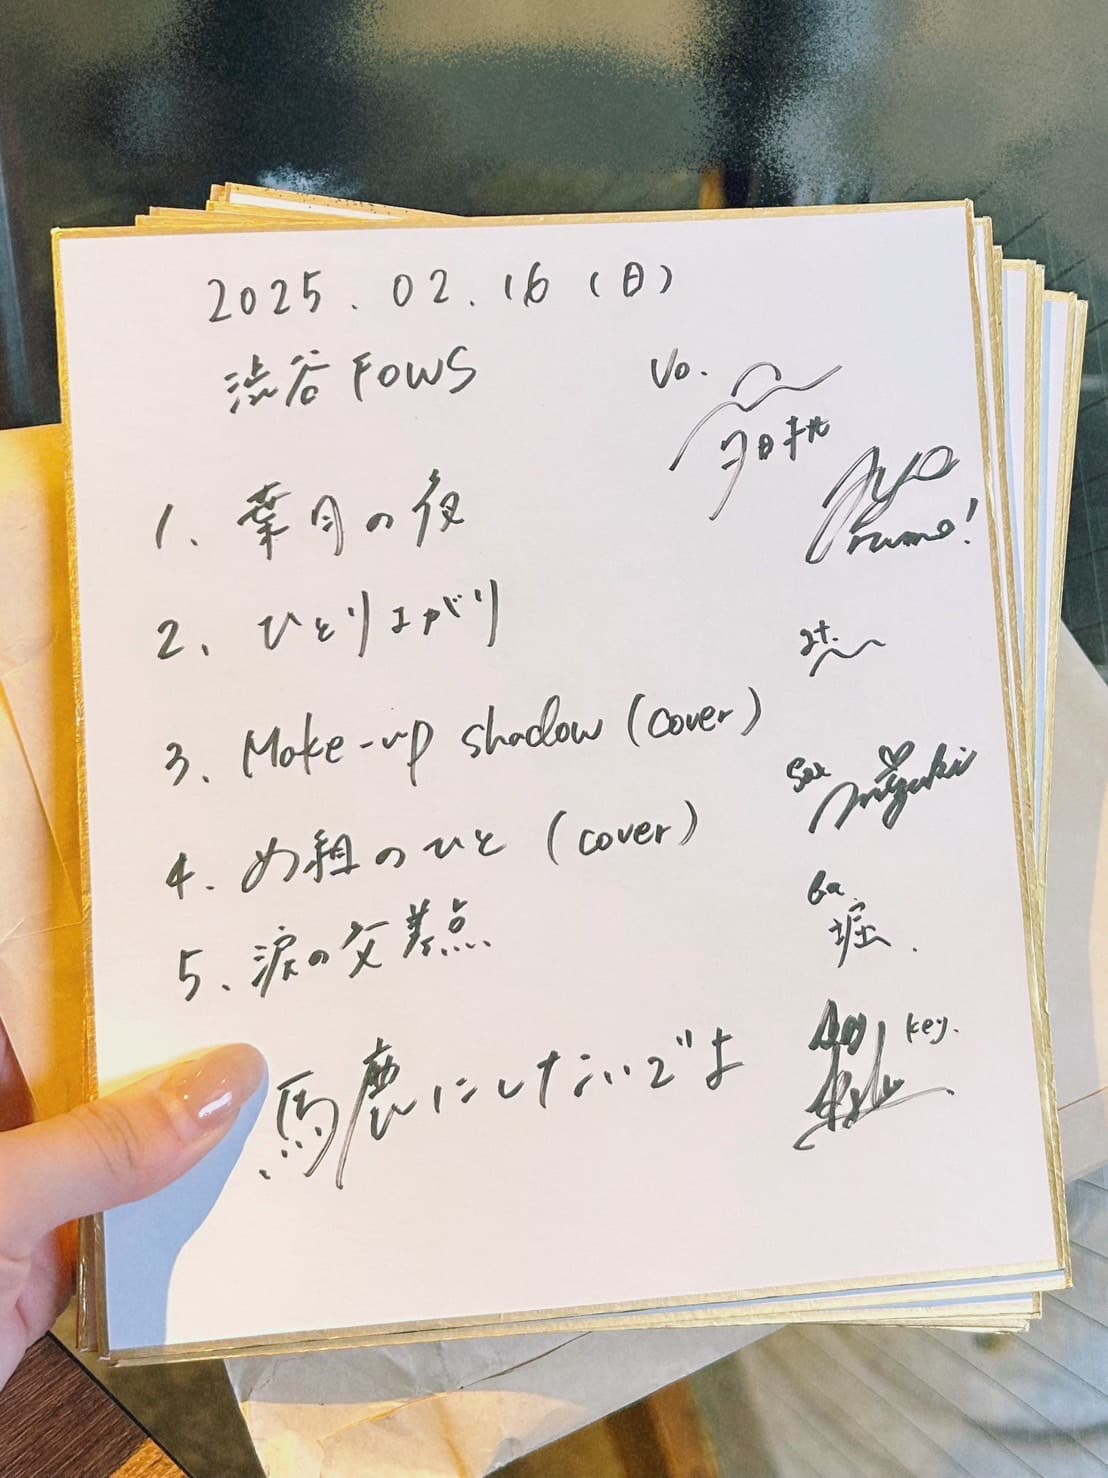 2025.02.16(日)
渋谷 FOWS
1. 葉月の夜
2. ひとり上がり
3. Make-up shadow (cover)
4. め組のひと (cover)
5. 涙の交差点
馬鹿にしないでよ
Vo.
gt.
Sax mizuki
Ba
堀.
key.